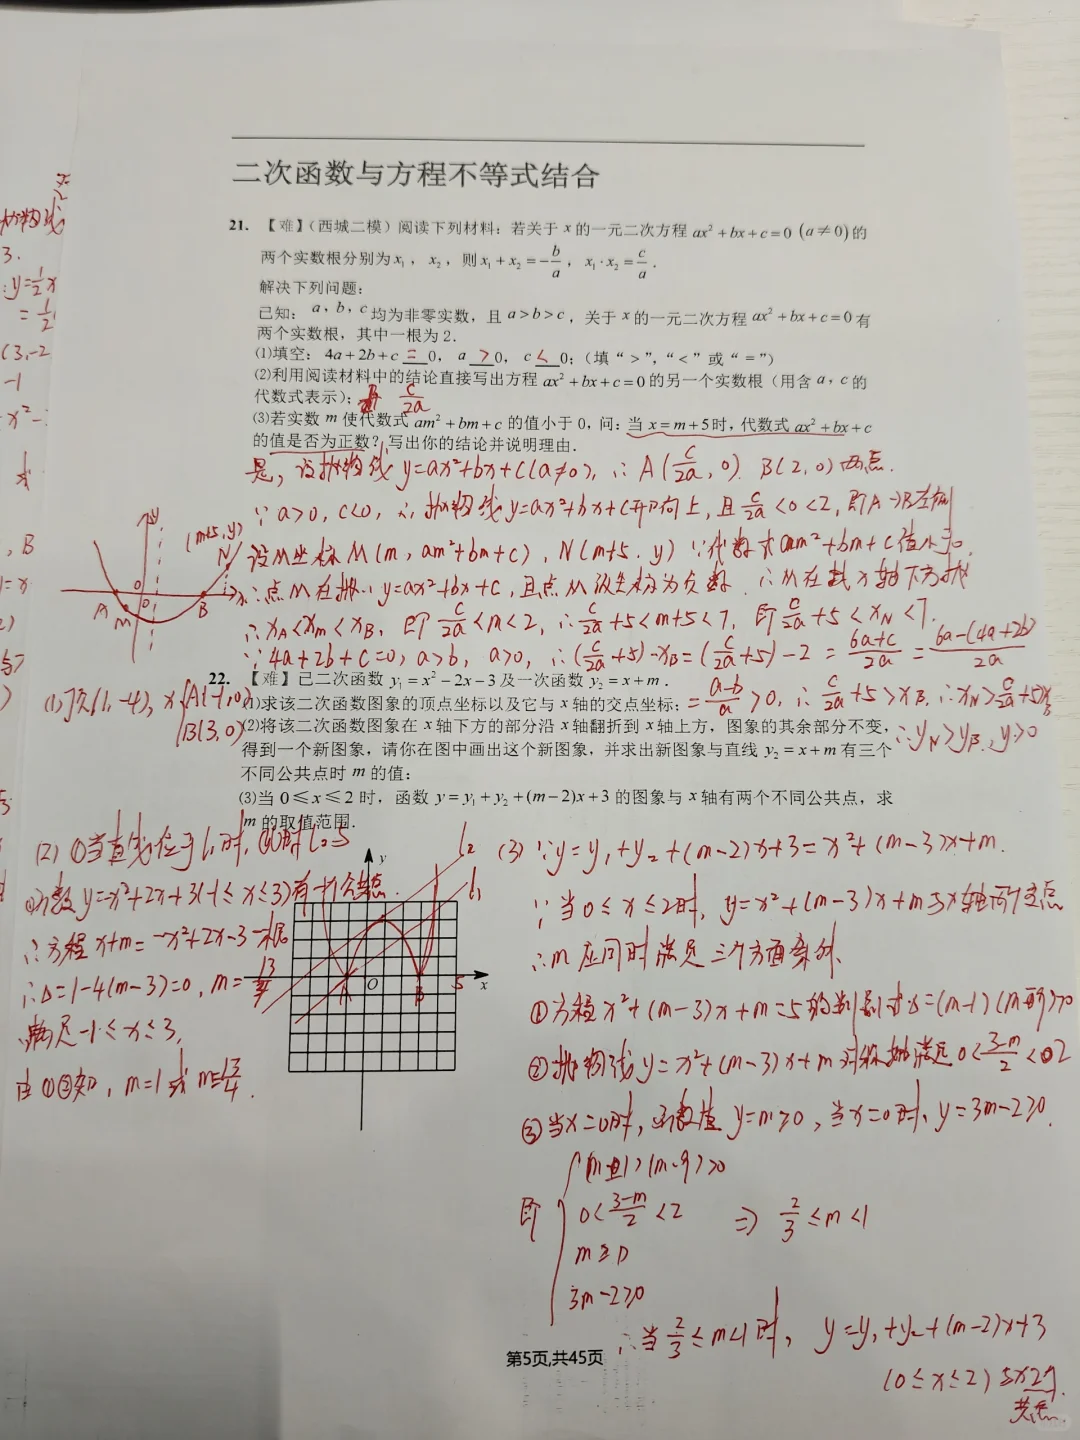 二次函数与方程不等式结合
21. 【难】(西城二模)阅读下列材料：若关于 x 的一元二次方程 ax²+bx+c=0 (a≠0) 的
两个实数根分别为 x₁，x₂，则 x₁+x₂=-b/a，x₁·x₂=c/a．
解决下列问题：
已知：a，b，c 均为非零实数，且 a>b>c，关于 x 的一元二次方程 ax²+bx+c=0 有
两个实数根，其中一根为 2．
(1)填空：4a+2b+c = 0，a > 0，c < 0；(填“>”，“<”或“=”)
(2)利用阅读材料中的结论直接写出方程 ax²+bx+c=0 的另一个实数根（用含 a，c 的
代数式表示）； c/2a
(3)若实数 m 使代数式 am²+bm+c 的值小于 0，问：当 x=m+5 时，代数式 ax²+bx+c
的值是否为正数？写出你的结论并说明理由．
是，设抛物线 y=ax²+bx+c(a≠0)，∴ A(c/2a，0) B(2，0)两点．
∵ a>0，c<0，∴抛物线 y=ax²+bx+c开口向上，且 c/2a<0<2，即A在B左侧
设M坐标 M(m，am²+bm+c)，N(m+5．y) ∵代数式am²+bm+c值小于0，
∴点M在抛 y=ax²+bx+c，且点M纵坐标为负数．∴M在 x轴下方
∴xA<xm<xB，即 c/2a<m<2，∴c/2a+5<m+5<7，即 c/2a+5<xN<7．
∵4a+2b+c=0，a>b，a>0，∴(c/2a+5)-xB=(c/2a+5)-2=6a+c/2a=6a-(4a+2b)/2a
=a-b/a>0，∴ c/2a+5>xB，∴xN>c/2a+5>xB
∴yN>yB，y>0
(m+5，y)
N
y
O
A
M
B
x
22. 【难】已二次函数 y₁=x²-2x-3 及一次函数 y₂=x+m．
(1)求该二次函数图象的顶点坐标以及它与 x 轴的交点坐标；
(2)将该二次函数图象在 x 轴下方的部分沿 x 轴翻折到 x 轴上方，图象的其余部分不变，
得到一个新图象，请你在图中画出这个新图象，并求出新图象与直线 y₂=x+m 有三个
不同公共点时 m 的值；
(3)当 0≤x≤2 时，函数 y=y₁+y₂+(m-2)x+3 的图象与 x 轴有两个不同公共点，求
m 的取值范围．
(1)顶(1，-4)，x A(-1，0)
B(3，0)
(2) ①当直线位于l₁时，
函数 y=-x²+2x+3(-1≤x≤3)有一个公共点．
∴方程 x+m=-x²+2x-3一根
∴Δ=1-4(m-3)=0，m=13/4
满足-1≤x≤3，
由①②知，m=1或m=13/4．
l₂
l₁
y
A
O
B
5
x
(3) ∵y=y₁+y₂+(m-2)x+3=x²+(m-3)x+m．
∵当0≤x≤2时，y=x²+(m-3)x+m与x轴两个交点
∴m应同时满足三个方面条件．
①方程x²+(m-3)x+m=5的判别式Δ=(m-1)(m-9)>0
②抛物线 y=x²+(m-3)x+m对称轴满足 0<3-m/2<2
③当x=0时，函数值 y=m≥0，当x=0时，y=3m-2≥0．
(m-1)(m-9)>0
即 0<3-m/2<2 ⇒ 2/3≤m<1
m≥0
3m-2≥0
∴当 2/3≤m<1时，y=y₁+y₂+(m-2)x+3
(0≤x≤2)与x2个
共点．
第5页,共45页